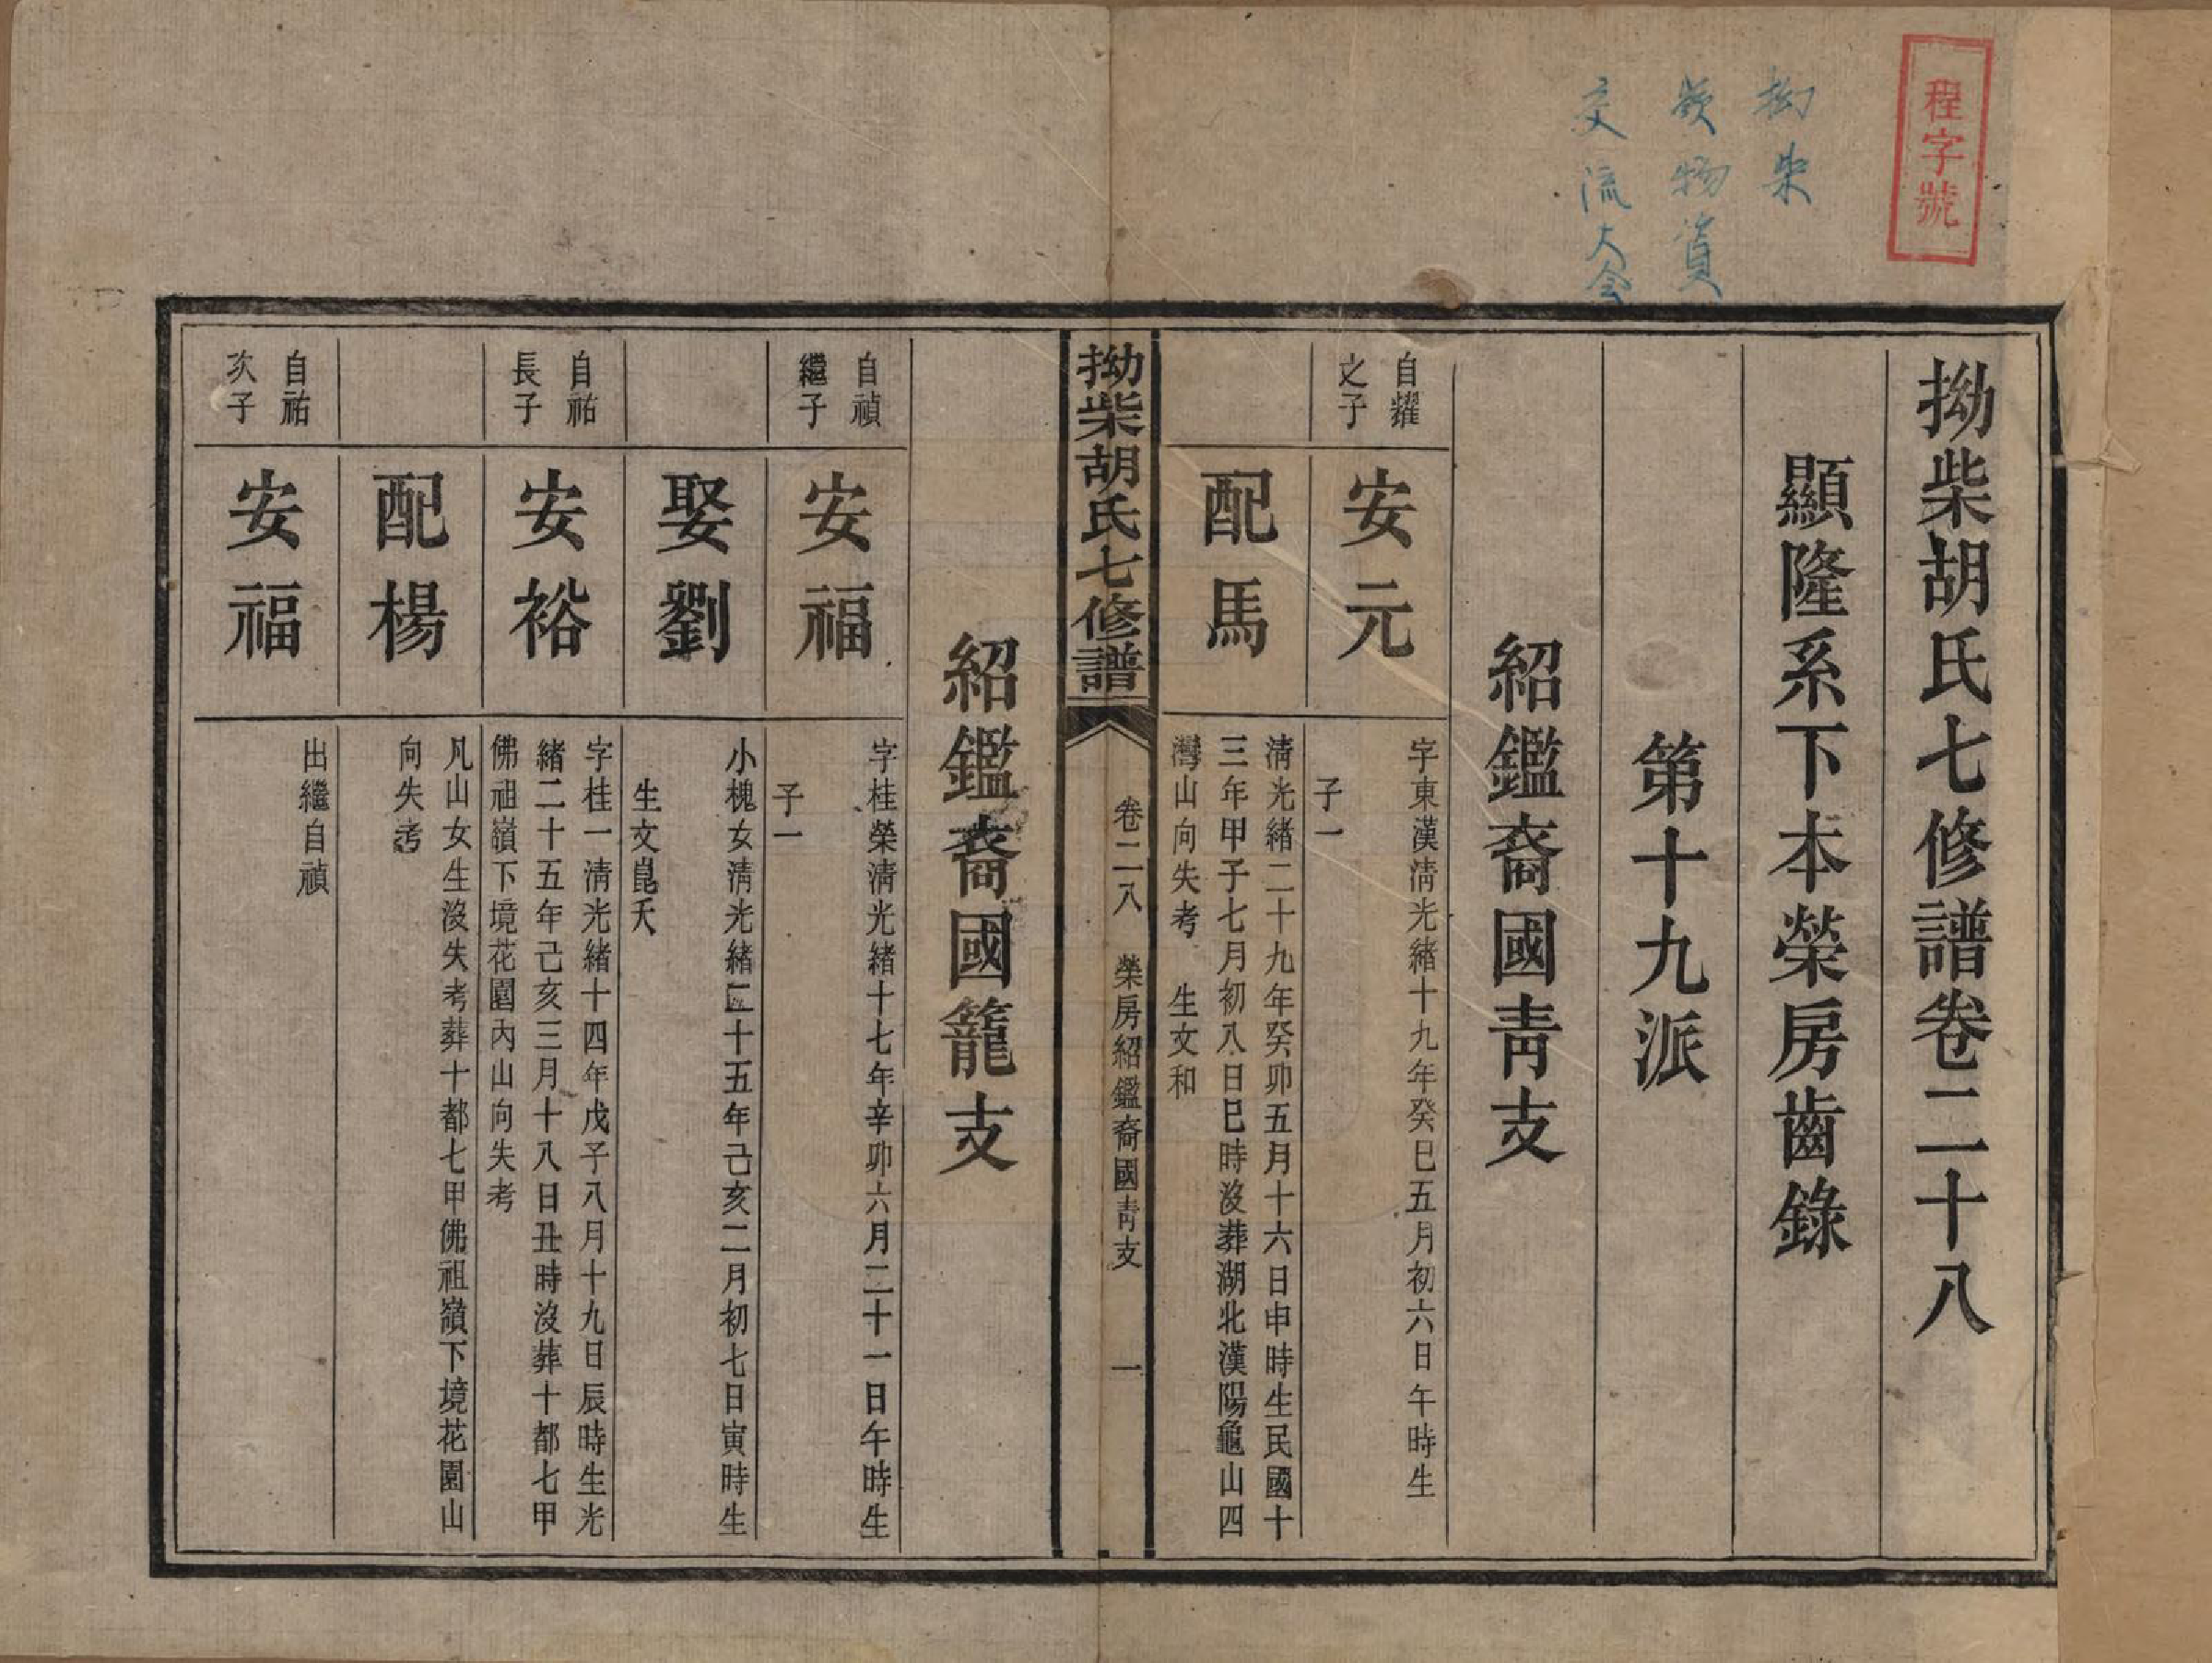 程字號
拗柴
物資
交流大会
拗柴胡氏七修譜卷二十八
顯隆系下本榮房齒錄
第十九派
紹鑑裔國青支
自耀之子
安元
字東漢清光緒十九年癸巳五月初六日午時生
子一
配馬
清光緒二十九年癸卯五月十六日申時生民國十
三年甲子七月初八日巳時沒葬湖北漢陽龜山四
灣山向失考　生文和
拗柴胡氏七修譜
卷二八　榮房紹鑑裔國青支　一
紹鑑裔國籠支
自禎繼子
安福
字桂榮清光緒十七年辛卯六月二十一日午時生
子一
娶劉
小槐女清光緒二十五年己亥二月初七日寅時生
生文崑夭
自祐長子
安裕
字桂一清光緒十四年戊子八月十九日辰時生光
緒二十五年己亥三月十八日丑時沒葬十都七甲
佛祖嶺下境花園內山向失考
配楊
凡山女生沒失考葬十都七甲佛祖嶺下境花園山
向失考
自祐次子
安福
出繼自禎